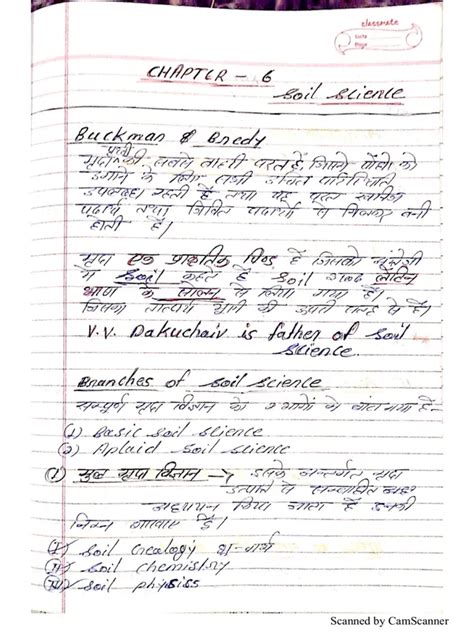 classmate
Date
Page
CHAPTER - 6
Soil Science
Buckman & Bredy
मृदा पृथ्वी की सबसे ऊपरी परत है, जिसमें पौधों को
उगाने के लिए सभी उचित परिस्थिती
उपलब्ध रहती हैं तथा यह परत खनिज
पदार्थ तथा जैविक पदार्थों से मिलकर बनी
होती है।
मृदा एक प्राकृतिक पिण्ड है जिसको अंग्रेजी
में Soil कहते हैं Soil शब्द लैटिन
भाषा के सोलम से लिया गया है।
जिसका तात्पर्य भूमी की ऊपरी सतह से है।
V.V. Dakuchaiv is father of Soil
Science.
Branches of Soil Science
सम्पूर्ण मृदा विज्ञान को 2 भागों में बांटा गया है-
(1) Basic Soil Science
(2) Aplaid Soil Science
(1) मूल मृदा विज्ञान → इसके अन्तर्गत मृदा
उत्पत्ति से सम्बन्धित
अध्ययन किया जाता है इसकी
निम्न शाखाएं हैं।
(I) Soil Geology
(II) Soil Chemistry
(III) Soil physiss
Scanned by CamScanner